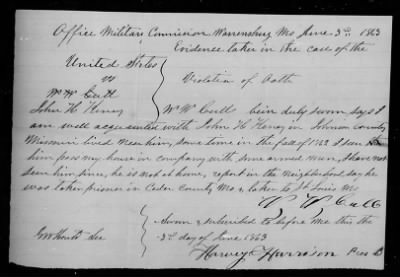 Office Military Commission Warrensburg Mo June 3rd 1863
Evidence taken in the case of the
United States
vs
Violation of Oath
W W Call
John H Henry
W W Call being duly sworn, says I
am well acquainted with John H Henry in Johnson County
Missouri lived near him, some time in the fall of 1862 I saw
him pass my house in company with some armed men, I have not
seen him since, he is not at home, report in the neighborhood say he
was taken prisoner in Cedar County Mo & taken to St Louis Mo
W W Call
Sworn & subscribed to before me this the
3rd day of June 1863
Sec
Harvey Harrison Pres